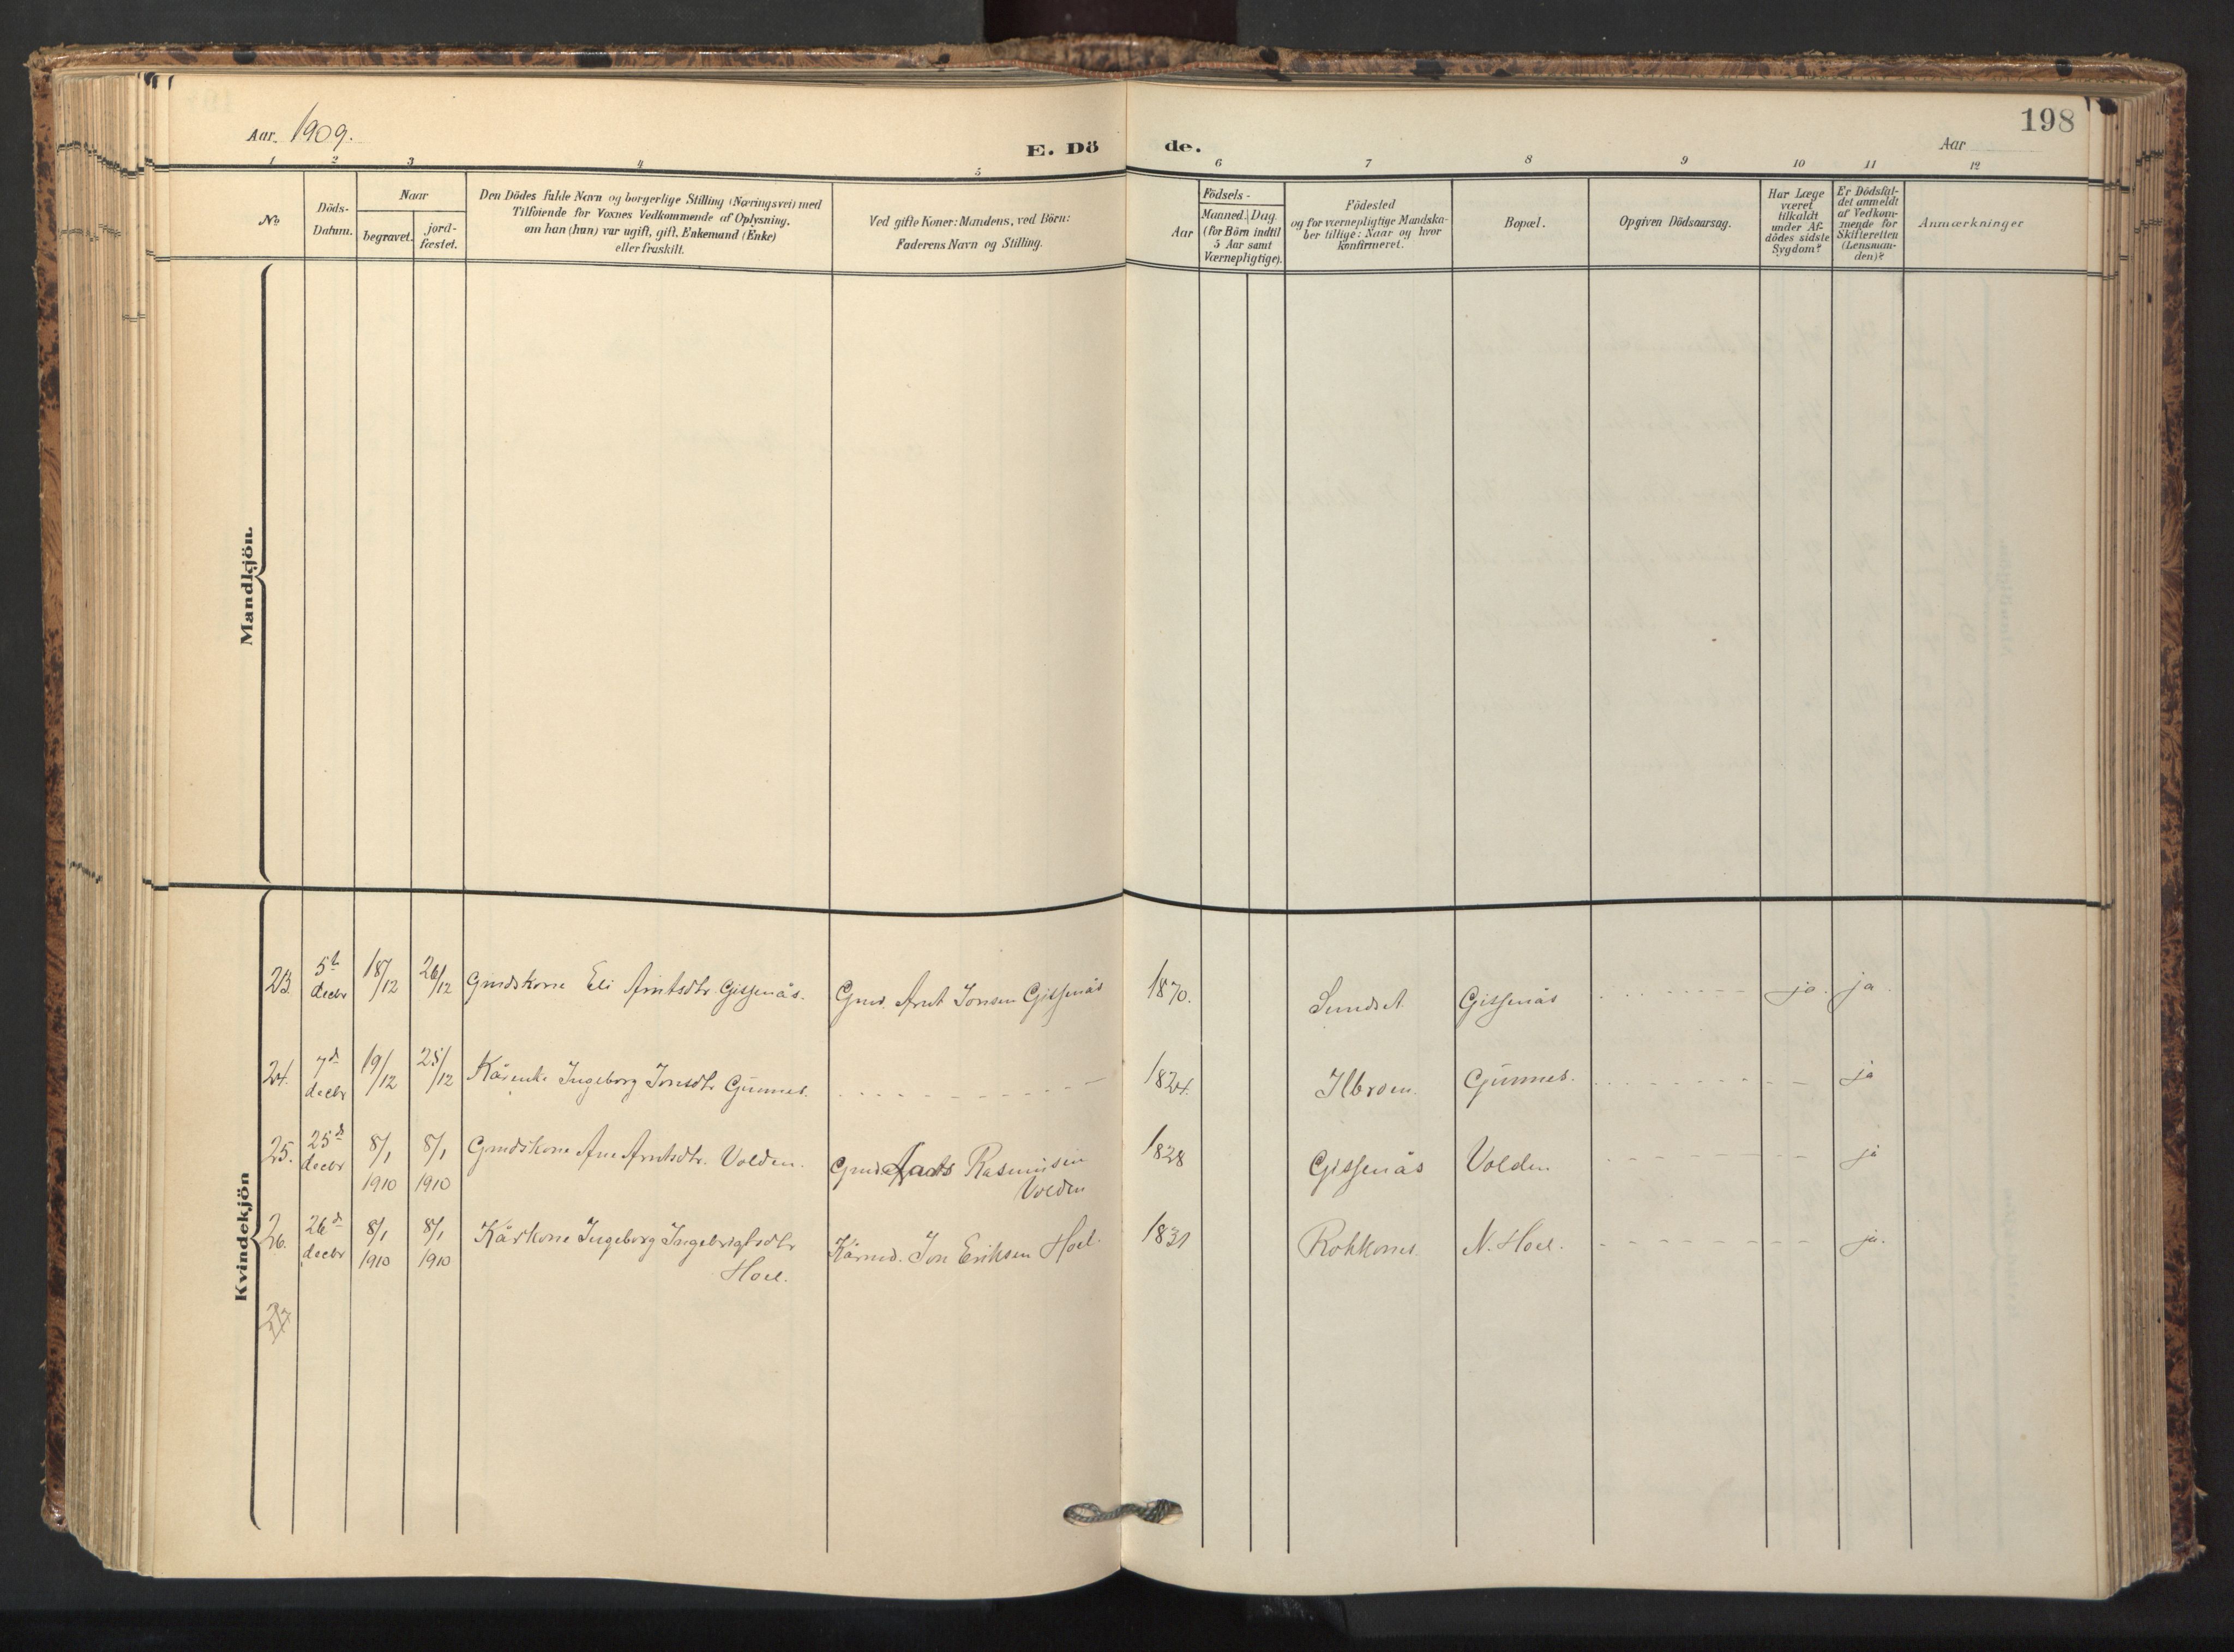 198
Aar 1909.
E. Dö de.
Aar
1 2 3 4 5 6 7 8 9 10 11 12
No
Döds-
Datum.
Naar
begravet.
jord-
fæstet.
Den Dödes fulde Navn og borgerlige Stilling (Næringsvei) med
Tilföiende for Voxnes Vedkommende af Oplysning,
om han (hun) var ugift, gift, Enkemand (Enke)
eller fraskilt.
Ved gifte Koner: Mandens, ved Börn:
Faderens Navn og Stilling.
Födsels-
Aar
Maaned. Dag.
(for Börn indtil
5 Aar samt
Værnepligtige).
Födested
og for værnepligtige Mandska-
ber tillige: Naar og hvor
konfirmeret.
Bopæl.
Opgiven Dödsaarsag.
Har Læge
været
tilkaldt
under Af-
dödes sidste
Sygdom?
Er Dödsfal-
det anmeldt
af Vedkom-
mende for
Skifteretten
(Lensman-
den)?
Anmærkninger
Mandkjön.
Kvindekjön
23. 5te decbr 18/12 26/12 Gmdskone Eli Arntsdtr. Gissenås. Gmd. Arnt Jonsen Gissenås 1870. Sundset Gissenås ja. ja
24. 7de decbr 19/12 25/12 Kårenke Ingeborg Jonsdtr. Gunnes. 1824. Ilbroen. Gunnes. ja
25. 25de decbr 8/1 1910 8/1 1910 Gmdskone Ane Arntsdtr. Volden. Gmd. Lads Rasmussen 1828 Gissenås Volden ja
Volden
26. 26de decbr 8/1 1910 8/1 1910 Kårkone Ingeborg Ingebrigtsdtr Kårmd. Jon Eriksen Hoel. 1831 Rokkones. N. Hoel. ja.
Hoel.
27